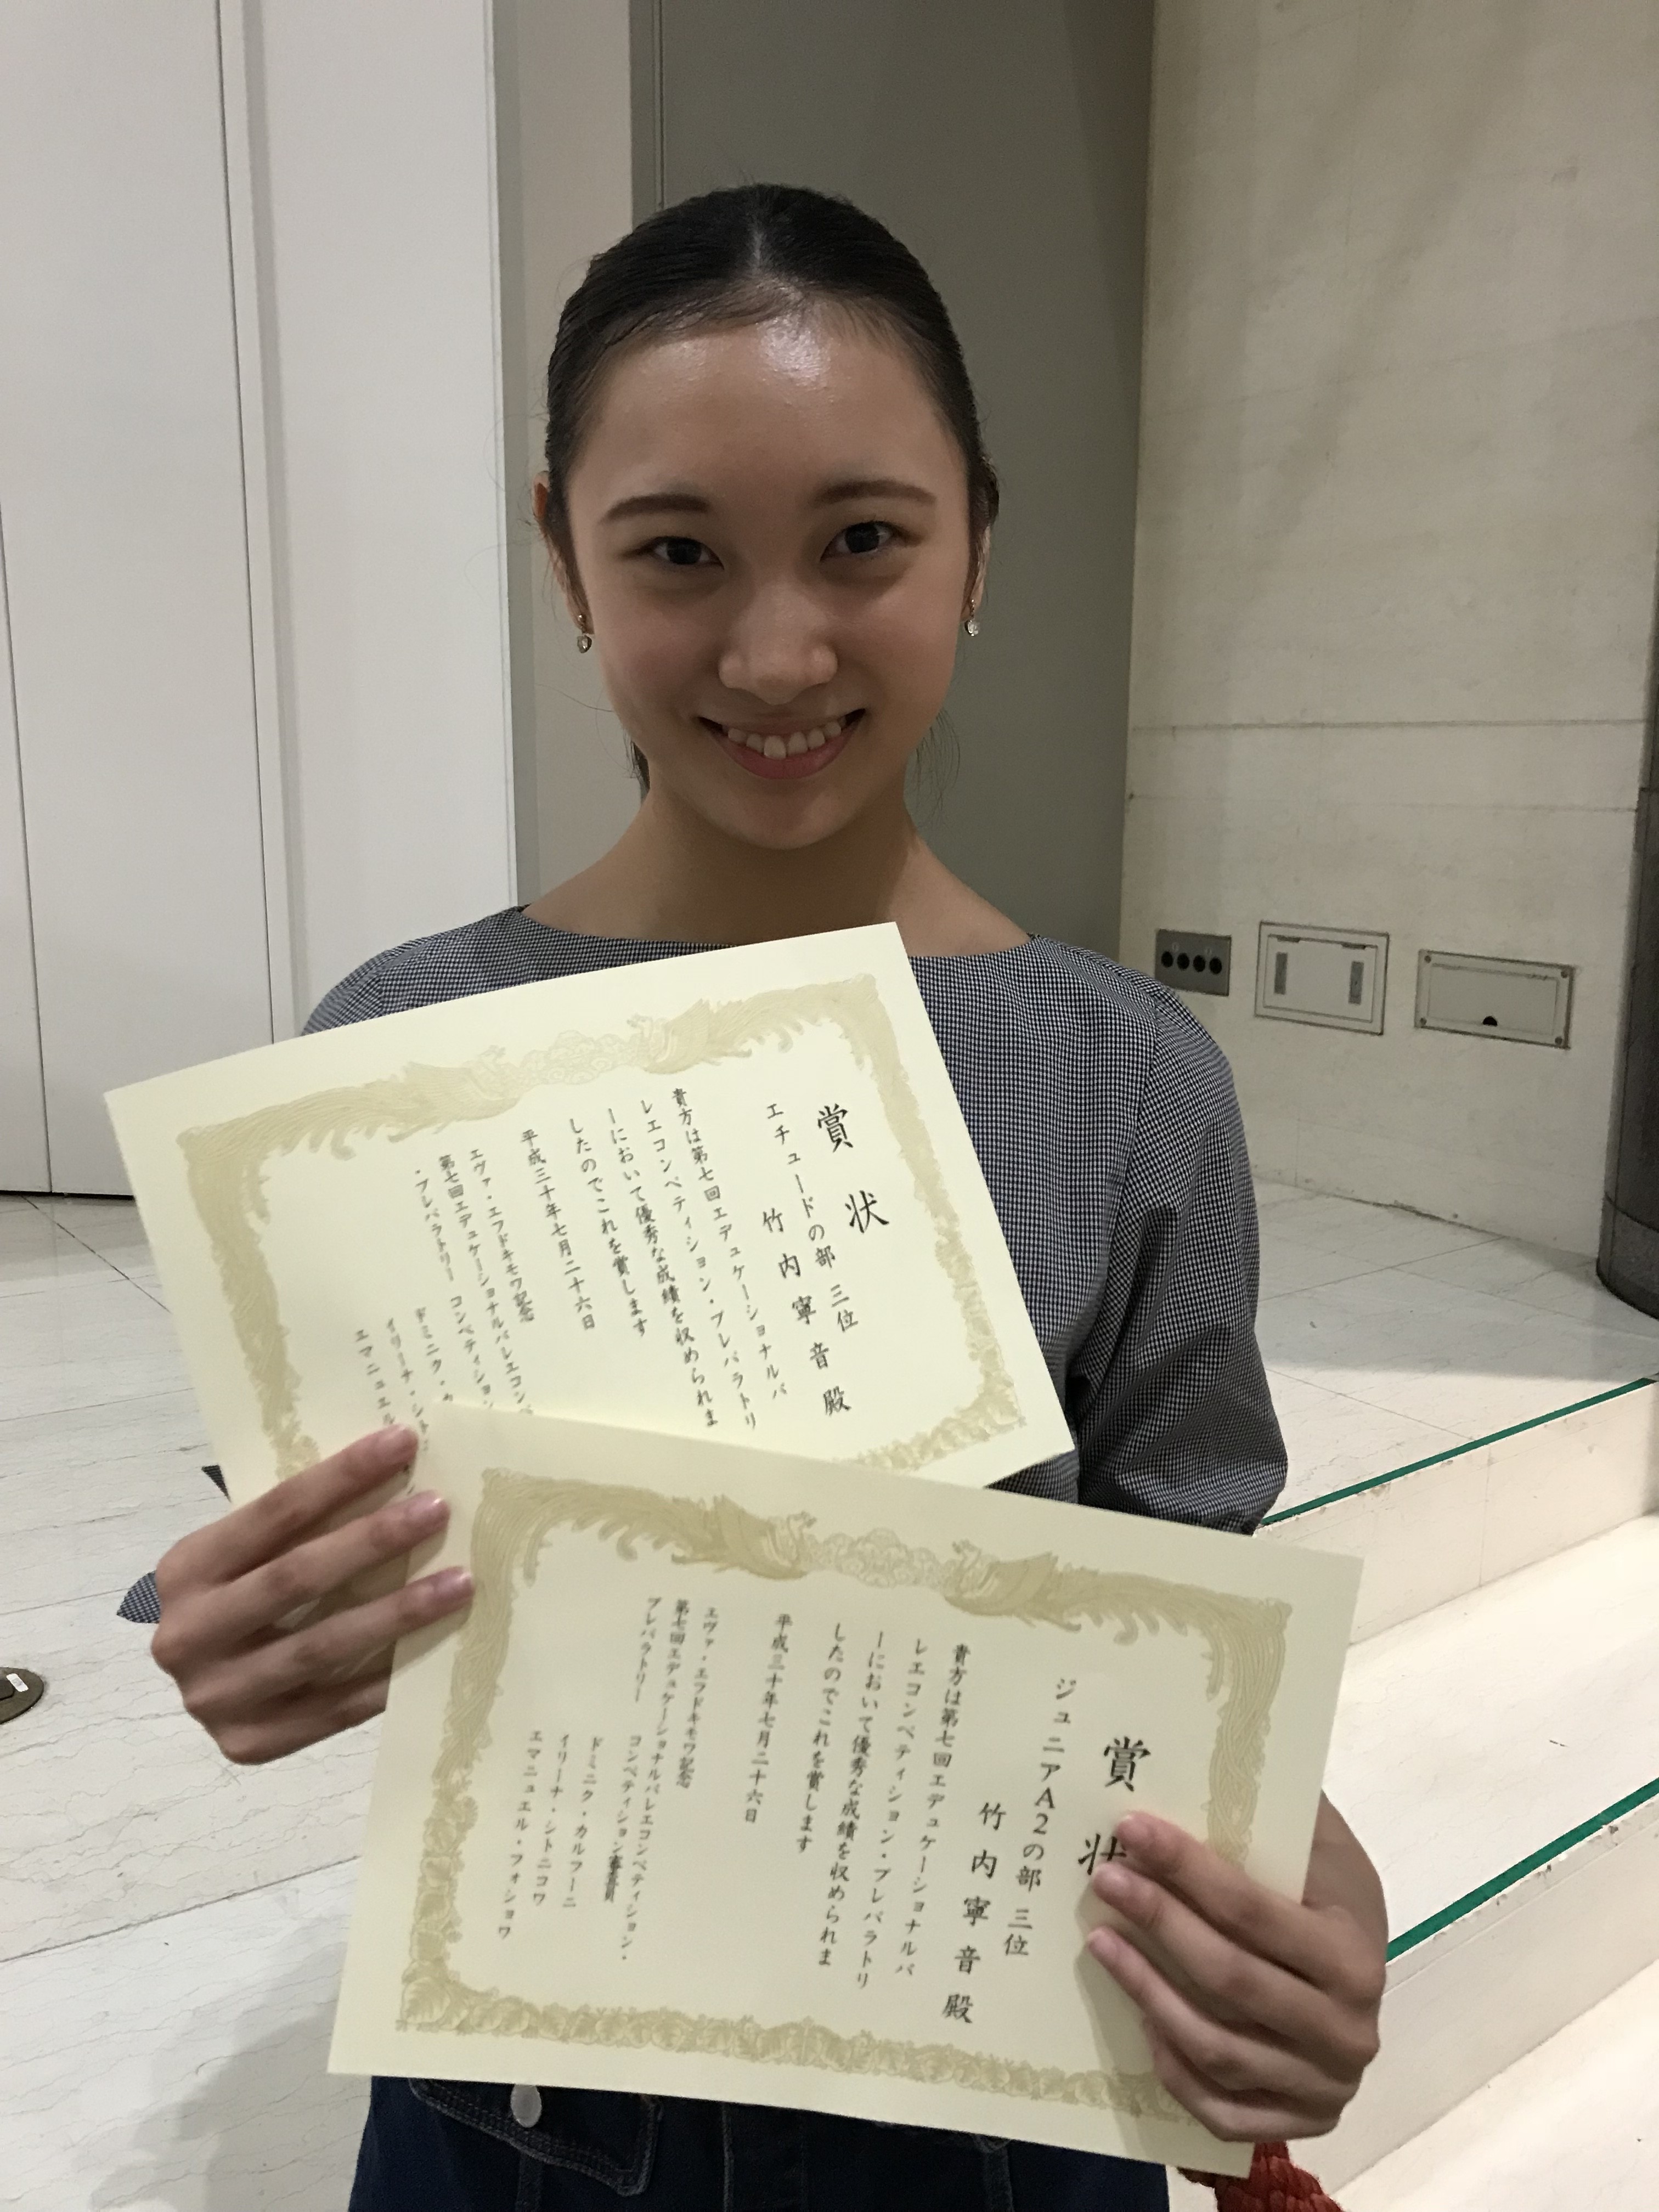 賞状
エチュードの部 三位
竹内寧音殿
貴方は第七回エデュケーショナルバ
レエコンペティション・プレパラトリ
ーにおいて優秀な成績を収められま
したのでこれを賞します
平成三十年七月二十六日
エヴァ・エフドキモワ記念
第七回エデュケーショナルバレエコンペ
・プレパラトリー コンペティション
ドミニク・カ
イリーナ・シトニコ
エマニュエル
賞状
ジュニアA2の部 三位
竹内寧音殿
貴方は第七回エデュケーショナルバ
レエコンペティション・プレパラトリ
ーにおいて優秀な成績を収められま
したのでこれを賞します
平成三十年七月二十六日
エヴァ・エフドキモワ記念
第七回エデュケーショナルバレエコンペティション・
プレパラトリー コンペティション審査員
ドミニク・カルフーニ
イリーナ・シトニコワ
エマニュエル・フォショワ